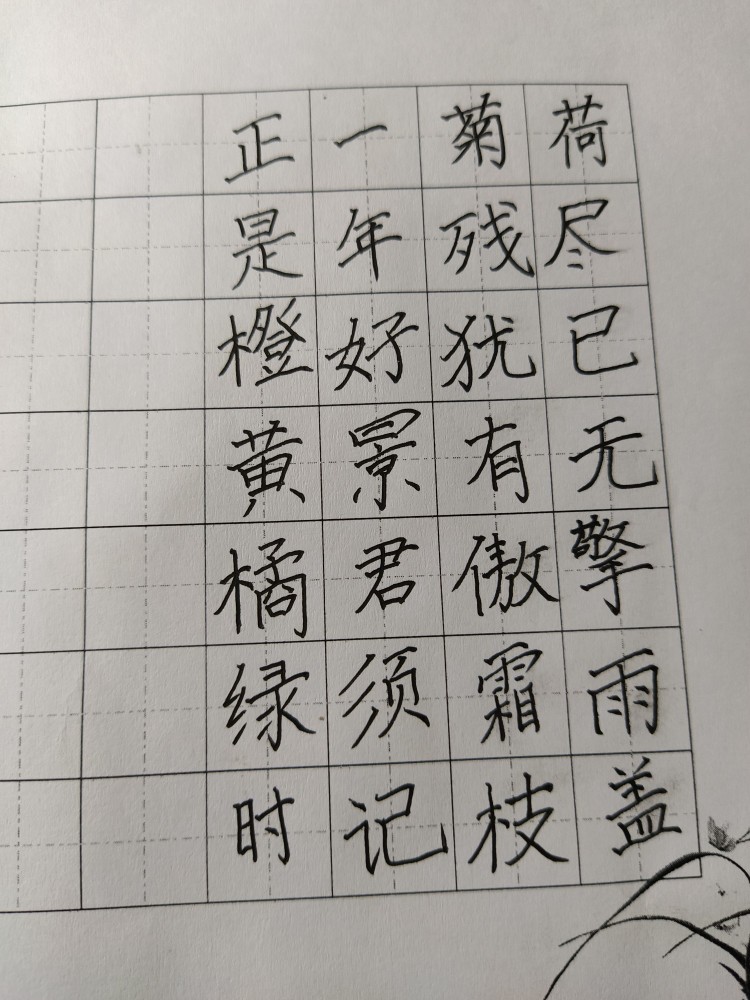 荷尽已无擎雨盖
菊残犹有傲霜枝
一年好景君须记
正是橙黄橘绿时